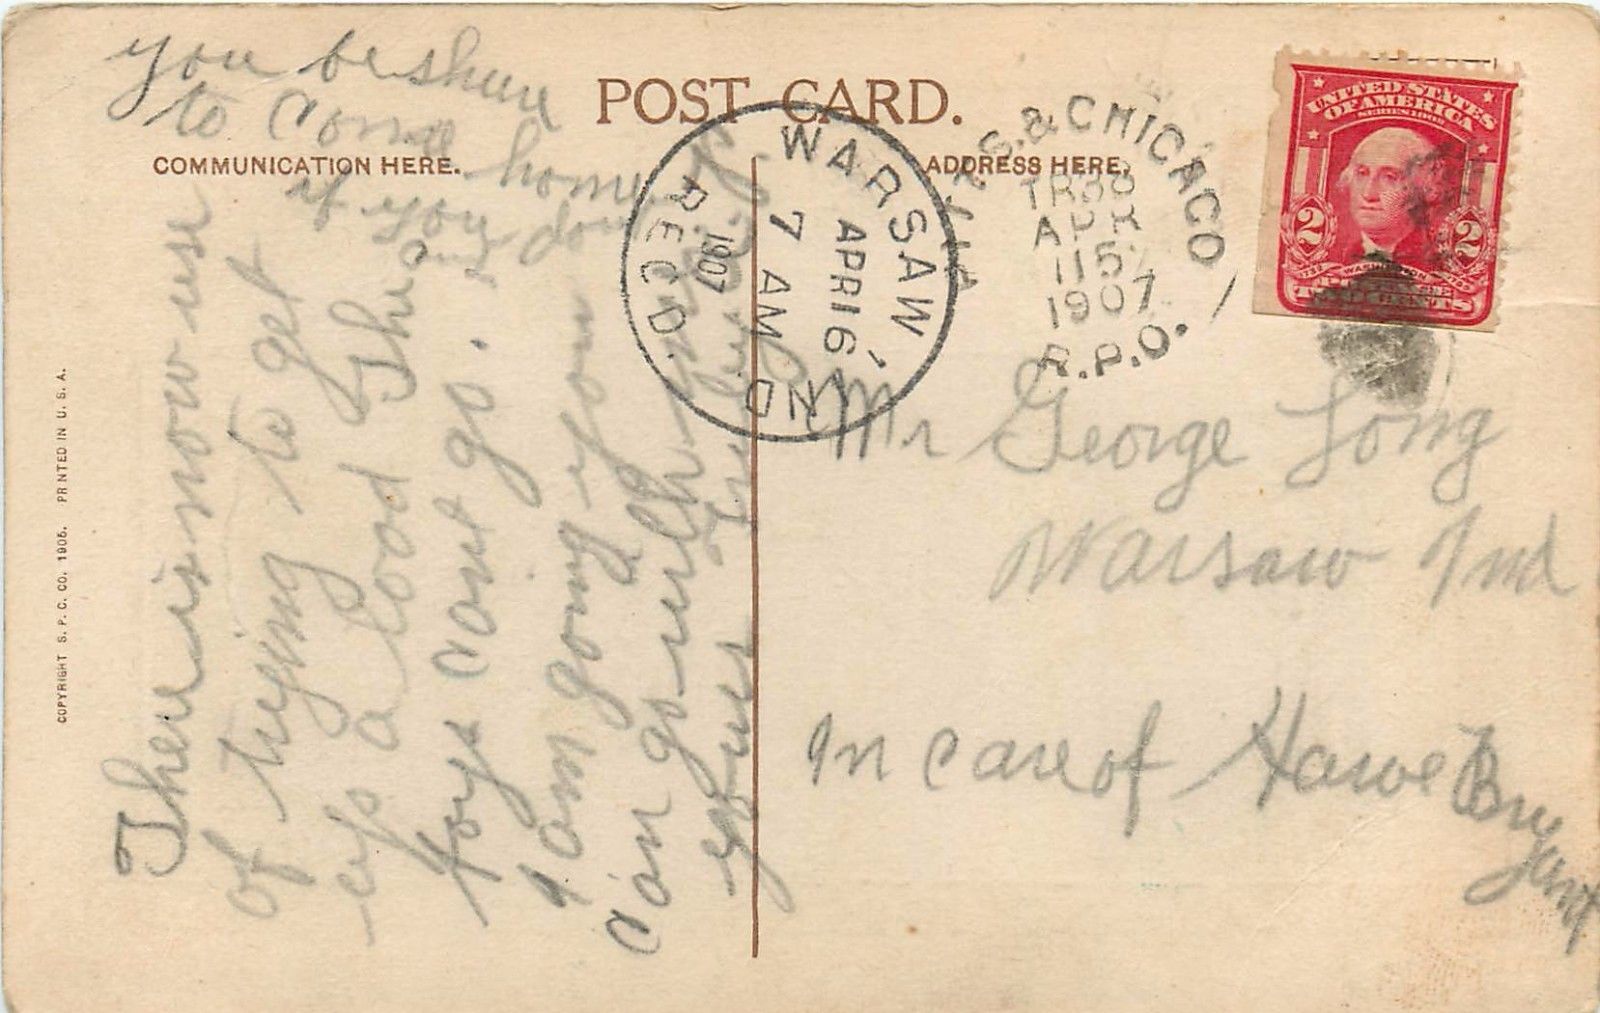 POST CARD.
COMMUNICATION HERE.
ADDRESS HERE.
you be shure
to come home
if you dont
go.
There is now use
of trying to get
up a load The
boys cant go.
I am going if you
can go with
yours Truley
WARSAW, IND.
APR 16
7 AM
1907
REC'D.
& CHICAGO
APR
15
1907
R.P.O.
UNITED STATES
OF AMERICA
SERIES 1902
2 2
WASHINGTON
TWO CENTS
Mr George Long
Warsaw Ind
In care of Bryant
COPYRIGHT S. P. C. CO. 1905. PRINTED IN U. S. A.